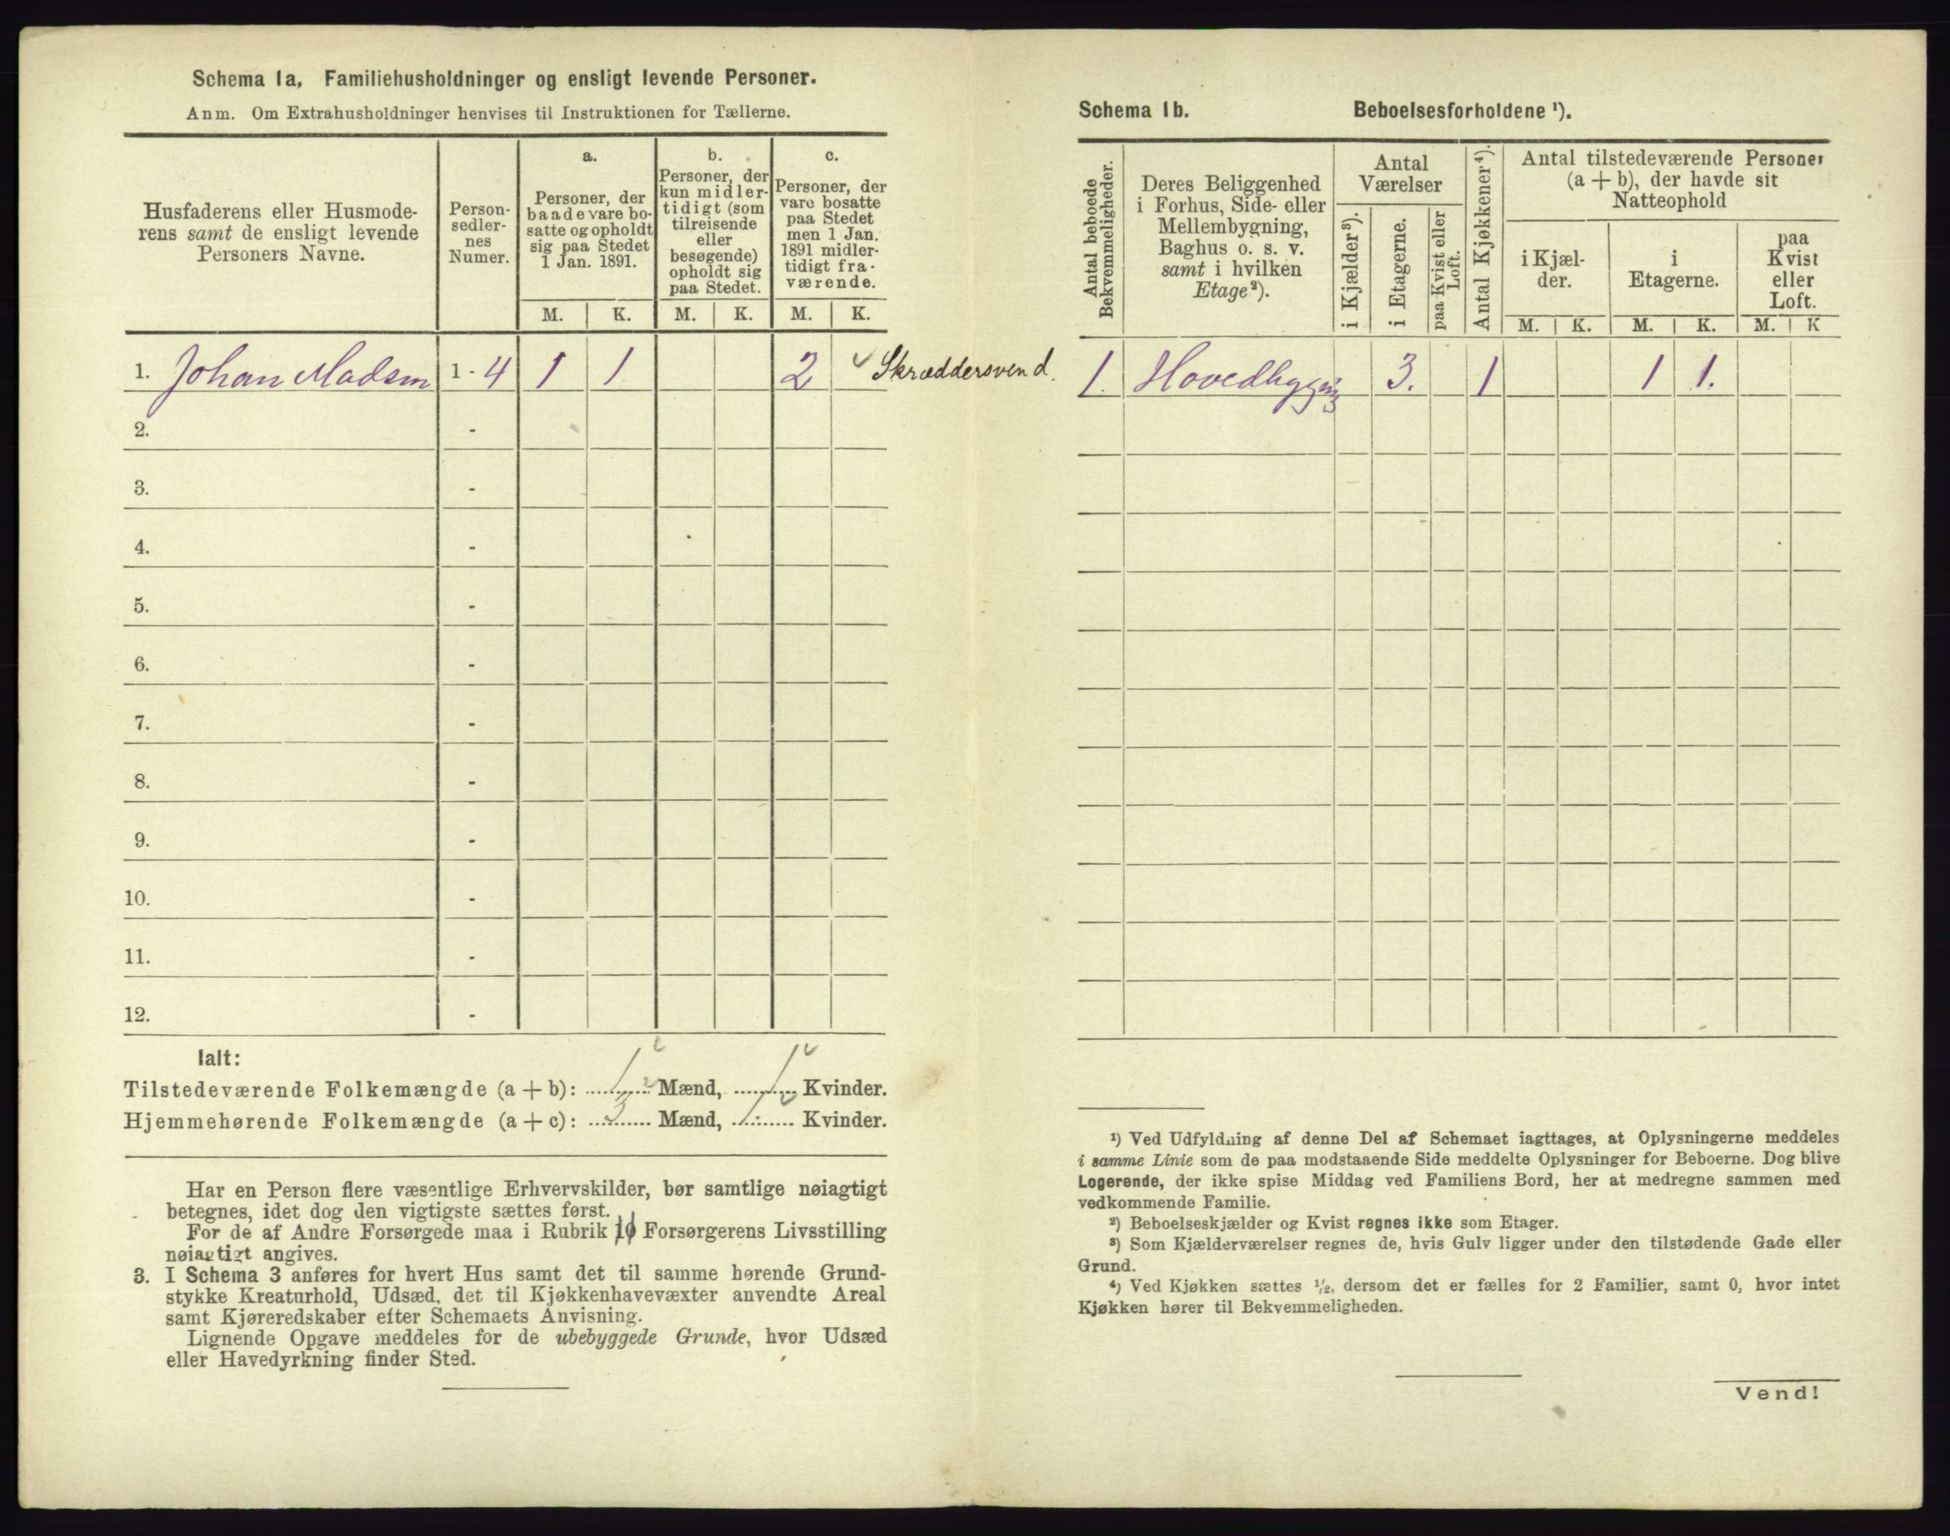 Schema 1a, Familiehusholdninger og ensligt levende Personer.
Anm. Om Extrahusholdninger henvises til Instruktionen for Tællerne.
Husfaderens eller Husmode-
rens samt de ensligt levende
Personers Navne.
Person-
sedler-
nes
Numer.
a.
Personer, der
baade vare bo-
satte og opholdt
sig paa Stedet
1 Jan. 1891.
b.
Personer, der
kun midler-
tidigt (som
tilreisende
eller
besøgende)
opholdt sig
paa Stedet.
c.
Personer, der
vare bosatte
paa Stedet
men 1 Jan.
1891 midler-
tidigt fra-
værende.
M. K. M. K. M. K.
1. Johan Madsen 1 - 4 1 1 2 Skræddersvend.
2. -
3. -
4. -
5. -
6. -
7. -
8. -
9. -
10. -
11. -
12. -
Ialt:
Tilstedeværende Folkemængde (a + b): 1 Mænd, 1 Kvinder.
Hjemmehørende Folkemængde (a + c): 3 Mænd, 1 Kvinder.
Har en Person flere væsentlige Erhvervskilder, bør samtlige nøiagtigt
betegnes, idet dog den vigtigste sættes først.
For de af Andre Forsørgede maa i Rubrik Forsørgerens Livsstilling
nøiagtigt angives.
3. I Schema 3 anføres for hvert Hus samt det til samme hørende Grund-
stykke Kreaturhold, Udsæd, det til Kjøkkenhavevæxter anvendte Areal
samt Kjøreredskaber efter Schemaets Anvisning.
Lignende Opgave meddeles for de ubebyggede Grunde, hvor Udsæd
eller Havedyrkning finder Sted.
Schema 1b. Beboelsesforholdene ¹).
Antal beboede
Bekvemmeligheder.
Deres Beliggenhed
i Forhus, Side- eller
Mellembygning,
Baghus o. s. v.
samt i hvilken
Etage²).
Antal
Værelser
i Kjælder³).
i Etagerne.
paa Kvist eller
Loft.
Antal Kjøkkener⁴).
Antal tilstedeværende Personer
(a + b), der havde sit
Natteophold
i Kjæl-
der.
i
Etagerne.
paa
Kvist
eller
Loft.
M. K. M. K. M. K
1. Hovedbygging 3. 1 1 1.
¹) Ved Udfyldning af denne Del af Schemaet iagttages, at Oplysningerne meddeles
i samme Linie som de paa modstaaende Side meddelte Oplysninger for Beboerne. Dog blive
Logerende, der ikke spise Middag ved Familiens Bord, her at medregne sammen med
vedkommende Familie.
²) Beboelseskjælder og Kvist regnes ikke som Etager.
³) Som Kjælderværelser regnes de, hvis Gulv ligger under den tilstødende Gade eller
Grund.
⁴) Ved Kjøkken sættes ½, dersom det er fælles for 2 Familier, samt 0, hvor intet
Kjøkken hører til Bekvemmeligheden.
Vend!